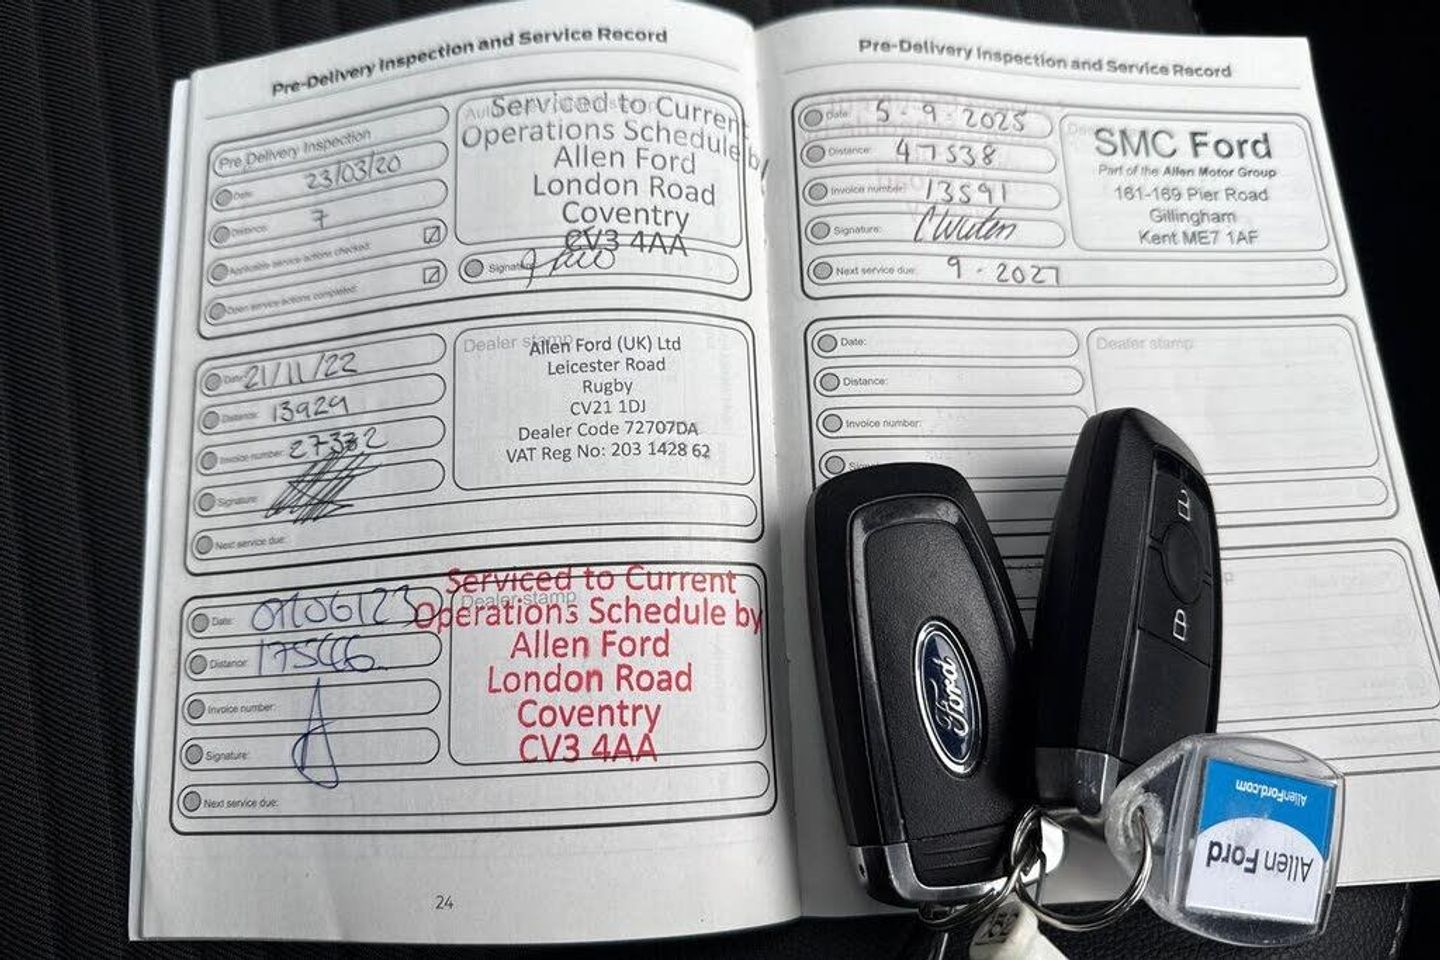 Pre-Delivery Inspection and Service Record
Pre Delivery Inspection
Date: 23/03/20
Distance: 7
Applicable service actions checked:
Open service actions completed:
Serviced to Current
Operations Schedule by
Allen Ford
London Road
Coventry
CV3 4AA
Signature
Date: 21/11/22
Distance: 13929
Invoice number: 27332
Signature:
Next service due:
Dealer stamp
Allen Ford (UK) Ltd
Leicester Road
Rugby
CV21 1DJ
Dealer Code 72707DA
VAT Reg No: 203 1428 62
Date:
Distance:
Invoice number:
Signature:
Next service due:
Dealer stamp
Serviced to Current
Operations Schedule by
Allen Ford
London Road
Coventry
CV3 4AA
24
Pre-Delivery Inspection and Service Record
Date: 5-9-2025
Distance: 47538
Invoice number: 13591
Signature:
Next service due: 9-2027
SMC Ford
Part of the Allen Motor Group
161-169 Pier Road
Gillingham
Kent ME7 1AF
Date:
Distance:
Invoice number:
Dealer stamp
Ford
AllenFord.com
Allen Ford